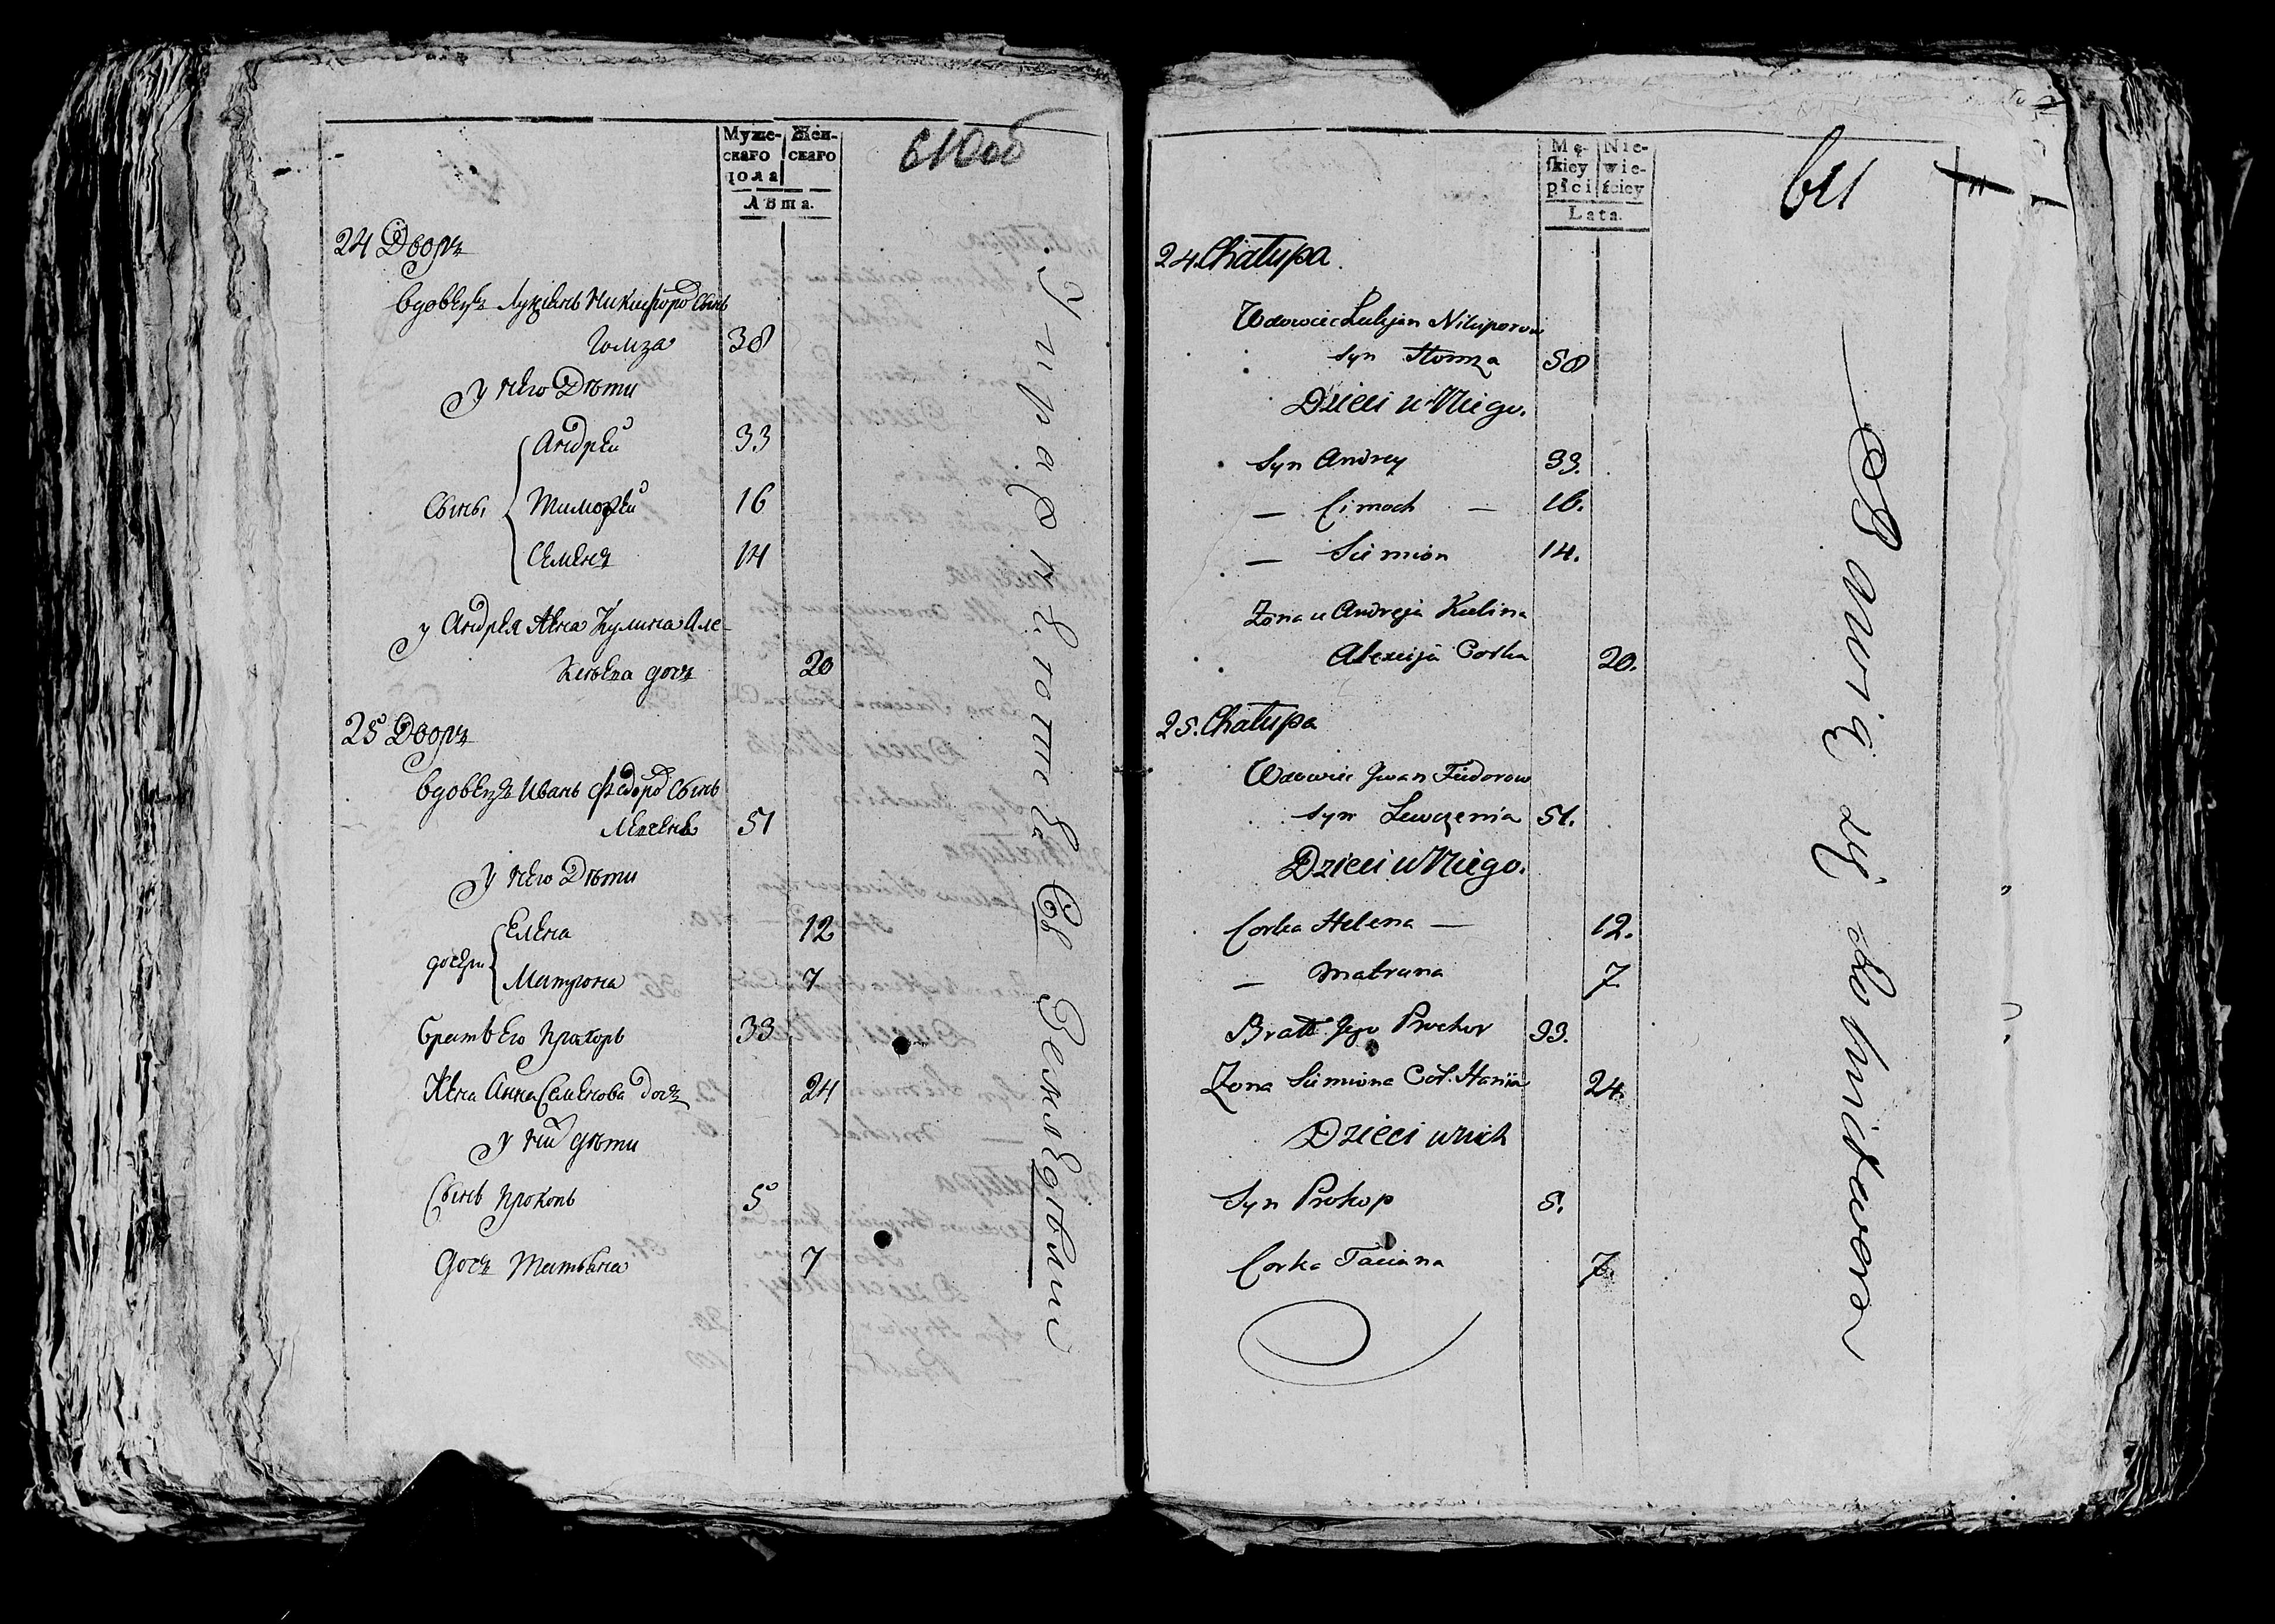 Муже-
скаго
пола
Жен-
скаго
Лѣта.
610об
24 Дворъ
вдовецъ Лукіянъ Никифоров Сынъ
Гомза 38
у него Дѣти
Сыны
Андрей 33
Тимофей 16
Семенъ 14
у Андрея жена Кулина Але-
ксѣева дочъ 20
25 Дворъ
вдовецъ Иванъ Федоров Сынъ
51
у него Дѣти
дочери
Елена 12
Матрона 7
братъ Его Прохоръ 33
Жена Анна Семенова Дочъ 24
у ней дѣти
Сынъ Прокопъ 5
Дочъ Татьяна 7
Mę-
skiey
płci
Nie-
wie-
ściey
Lata.
611
24. Chałupa.
Wdowiec Lukjan Nikiporow
syn Homza 58
Dzieci u Niego.
Syn Andrey 33.
— Cimoch — 16.
— Siemion 14.
Zona u Andreja Kulina
Alexieja Corka 20.
25. Chałupa
Wdowiec Jwan Fiedorow
syn Lewczenia 51.
Dzieci u Niego.
Corka Helena — 12.
— Matruna 7.
Bratt Jego Prochor 33.
Zona Siemiona Cór. Hanna 24.
Dzieci u nich
Syn Prokop 5.
Corka Taciana 7.